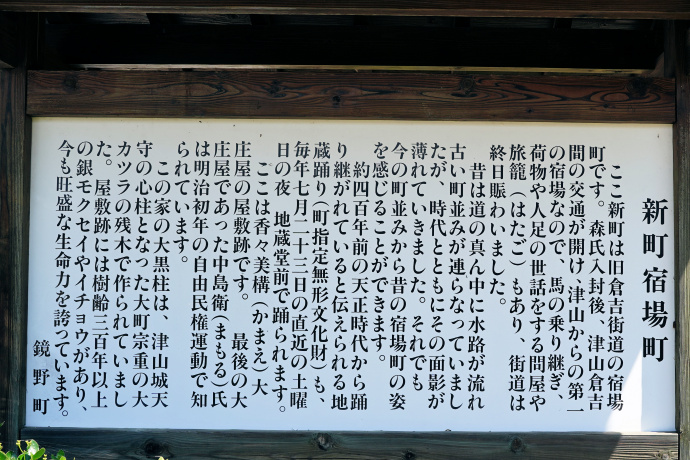 新町宿場町
ここ新町は旧倉吉街道の宿場
町です。森氏入封後、津山倉吉
間の交通が開け、津山からの第一
の宿場なので、馬の乗り継ぎ、
荷物や人足の世話をする問屋や
旅籠(はたご)もあり、街道は
終日賑わいました。
昔は道の真ん中に水路が流れ
古い町並みが連らなっていまし
たが、時代とともにその面影が
薄れていきました。それでも
今の町並みから昔の宿場町の姿
を感じることができます。
約四百年前の天正時代から踊
り継がれていると伝えられる地
蔵踊り(町指定無形文化財)も、
毎年七月二十三日の直近の土曜
日の夜、地蔵堂前で踊られます。
ここは香々美構(かまえ)大
庄屋の屋敷跡です。 最後の大
庄屋であった中島衛(まもる)氏
は明治初年の自由民権運動で知
られています。
この家の大黒柱は、津山城天
守の心柱となった大町宗重の大
カツラの残木で作られていまし
た。屋敷跡には樹齢三百年以上
の銀モクセイやイチョウがあり、
今も旺盛な生命力を誇っています。
鏡野町